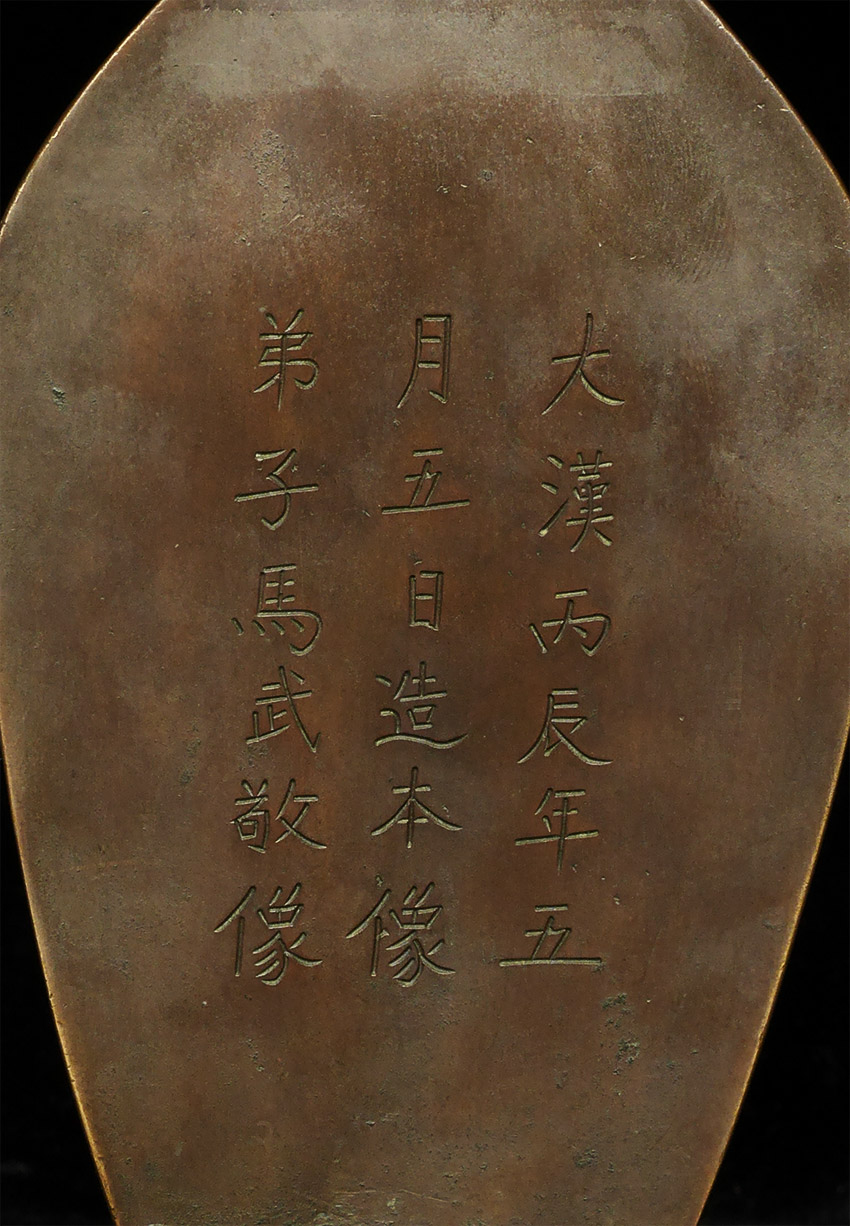 大漢丙辰年五
月五日造本像
弟子馬武敬像